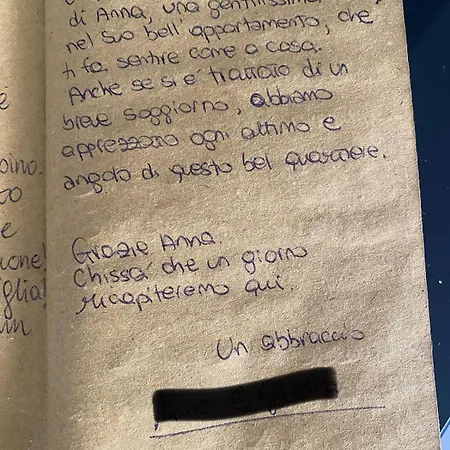 di Anna, una gentilissima
nel suo bell'appartamento, che
ti fa sentire come a casa.
Anche se si è trattato di un
breve soggiorno, abbiamo
apprezzato ogni attimo e
angolo di questo bel quartiere.
Grazie Anna.
Chissà che un giorno
ricapiteremo qui.
Un abbraccio